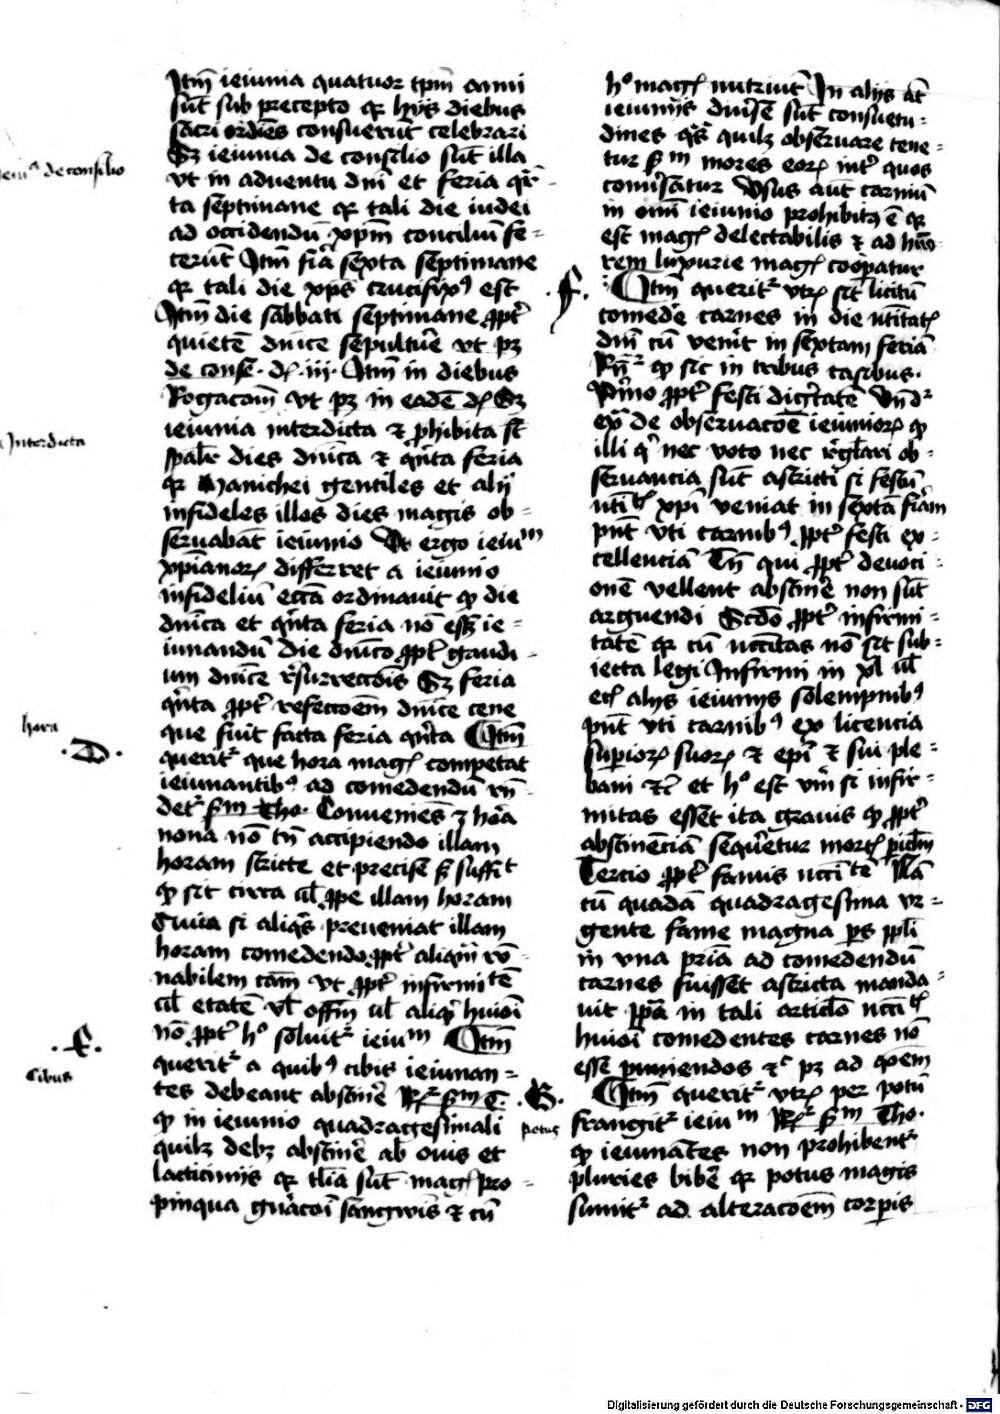 Itm̄ ieiunia quatuor tp̄m anni
sūt sub precepto qr hijs diebus
sacri ordīes consueuerūt celebrari
Sz ieiunia de consilio sūt illa
vt in aduentu dn̄i et feria qr̄-
ta septimane qr tali die iudei
ad occidendū xp̄m conciliū fe-
cerūt Itm̄ fīa sexta septimane
qr tali die xp̄s crucifixꝰ est
Itm̄ die sabbati septimane ꝓpt̄
quietē dnīce sepultur̄e vt pz
de conse. d. iii. Itm̄ in diebus
Rogacōm̄ vt pz in eadē d. Sz
ieiunia interdicta et ꝓhibita sūt
sp̄alr̄ dies dnīca et qn̄ta feria
qr Manichei gentiles et alij
infideles illos dies magis ob-
seruabāt ieiunio Vt ergo ieiuᵐ
xp̄ianoꝝ differret a ieiunio
infideliū ecc̄a ordinauit ꝙ die
dnīca et qn̄ta feria nō essz ie-
iunandū die dnīco ꝓpt̄ gaudi-
um dnīce rēsurreccōis Sz feria
qn̄ta ꝓpt̄ refeccoēm dnīce cene
que fuit facta feria qn̄ta Itm̄
querit̄ que hora maḡ competat
ieiunantibꝰ ad comedendū Rn̄-
det̄ sᵐ Tho. Conueniēs ē hōra
nona nō tn̄ accipiendo illam
horam stricte et precise s̄ suffiᵗ
ꝙ sit circa ul̄ ꝓpe illam horam
Cuia si aliqͥs preueniat illam
horam comedendo ꝓpt̄ aliqm̄ rō-
nabilem cām vt ꝓpt̄ infirmitē
ul̄ etatē vl̄ offm̄ ul̄ aliqͥ huiōi
nō ꝓpt̄ hͦ soluit̄ ieiuᵐ Itm̄
querit̄ a quibꝰ cibis ieiunan-
tes debeant abstinēr Rx̄ sᵐ T.
ꝙ in ieiunio quadragesimali
quilz debz abstinēr ab ouis et
lacticinijs qr tl̄ia sūt maḡ pro-
pinqua gn̄acōi sangwis et cū
ieiᵃ de consilio
Interdicta
hora
.D.
.E.
Cibus
hͦ maḡ nutriūt In alijs āt
ieiunijs diuīse sūt consuetu-
dines qͣs quilz obseruare tene-
tur sᵐ mores eoꝝ int̄ quos
comīsatur Vsus aūt carniū
in om̄i ieiunio prohibitꝰ ē qr
est maḡ delectabilis et ad humo-
rem luxurie maḡ coōpatur
Itm̄ querit̄ vtꝝ sit licitū
comedē carnes in die nt̄itat̄
dn̄i cū venīt in sextam feriā
Rn̄ ꝙ sic in tribus casibus.
Primo ꝓpt̄ festi dignitatē Vnd̄
ex̄ de obseruacōe ieiunioꝝ ꝙ
illi qͥ nec voto nec regl̄ari ob-
seruancia sūt astricti si festū
nt̄iᵗ xp̄i veniat in sextā fīam
pn̄t vti carnibꝰ ꝓpt̄ festi ex-
cellenciā Tn̄ qui ꝓpt̄ deuoci-
onē vellent abstinēr non sūt
arguendi Scdō ꝓpt̄ infirmi-
tatē qr cū nccītas nō sit sub-
iecta legi Infirmi in xl ul̄
et alijs ieiunijs solempnibꝰ
pn̄t vti carnibꝰ ex licencia
suꝑioꝝ suoꝝ et epī et sui ple-
bani etc̄ et hͦ est vm̄ si infir-
mitas esset ita grauis ꝙ ꝓpt̄
abstinēciā sequēretur mort̄ picl̄m
Tercio ꝓpt̄ famis ncc̄iᵗē Nā
cū quadā quadragesima vr-
gente fame magna ps ppl̄i
in vna prīa ad comedendū
carnes fuisset astricta manda-
uit pp̄a in tali articl̄o ncc̄iᵗ
huiōi comedentes carnes nō
esse puniendos etᶜ pz ad qōem
Itm̄ querit̄ vtꝝ per potū
frangit̄ ieiuᵐ Rx̄ sᵐ Tho.
ꝙ ieiunātes non prohibent̄
pluries bibēr qr potus magis
sumit̄ ad alteracoēm corpis
.F.
.G.
potus
Digitalisierung gefördert durch die Deutsche Forschungsgemeinschaft - DFG